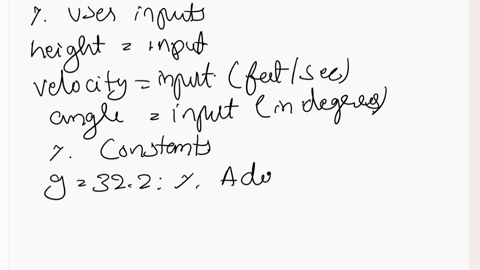 %. Uses inputs
height = input
velocity = input (feet/sec)
angle = input (in degrees)
%. Constants
g = 32.2: %. Ado